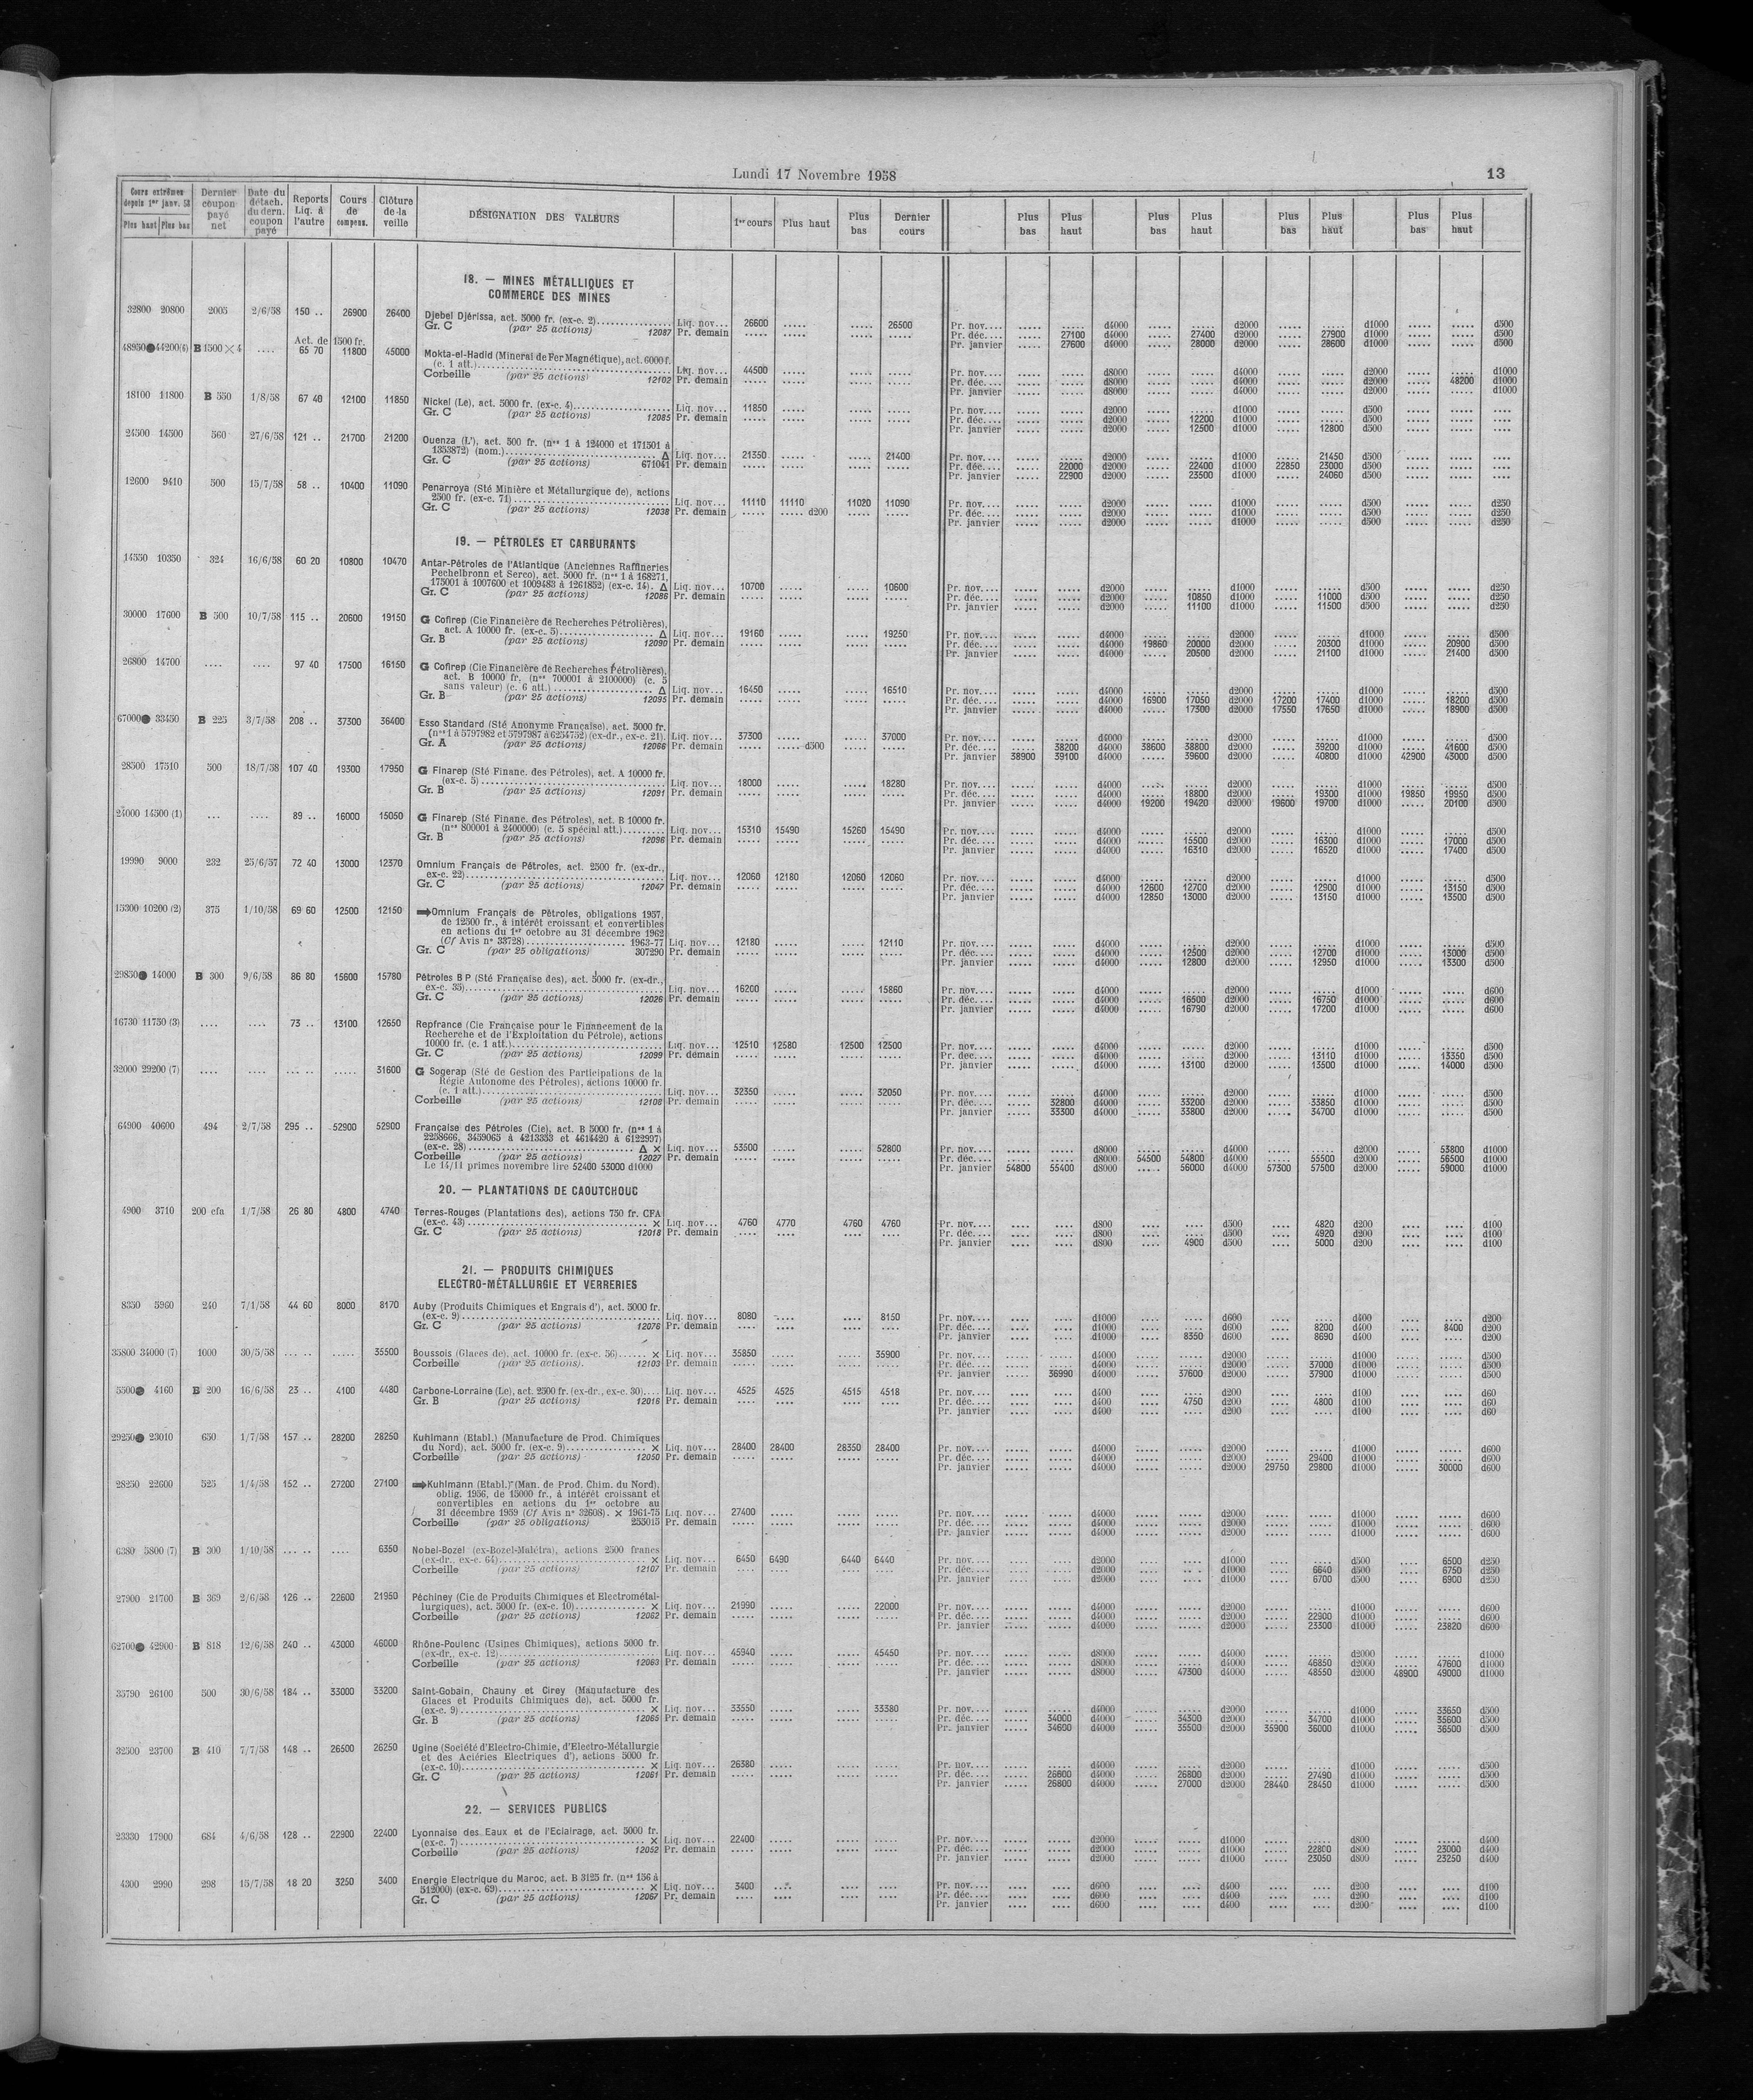 Lundi 17 Novembre 1958
13
Cours extrêmes depuis 1er janv. 58 Plus haut Plus bas | Dernier coupon payé net | Date du détach. du dern. coupon payé | Reports Liq. à l'autre | Cours de compens. | Clôture de la veille | DÉSIGNATION DES VALEURS | 1er cours | Plus haut | Plus bas | Dernier cours | Plus bas | Plus haut | Plus bas | Plus haut | Plus bas | Plus haut | Plus bas | Plus haut
18. — MINES MÉTALLIQUES ET
COMMERCE DES MINES
32800 20800 2005 2/6/58 150 .. 26900 26400 Djebel Djérissa, act. 5000 fr. (ex-c. 2)
Liq. nov... 26600 ..... ..... 26500 Pr. nov.... ..... ..... d4000 ..... ..... d2000 ..... ..... d1000 ..... ..... d500
Gr. C (par 25 actions) 12087 Pr. demain ..... ..... ..... ..... Pr. déc.... ..... 27100 d4000 ..... 27400 d2000 ..... 27900 d1000 ..... ..... d500
Pr. janvier ..... 27600 d4000 ..... 28000 d2000 ..... 28600 d1000 ..... ..... d500
Act. de 1500 fr.
48950● 44200(4) B 1500 × 4 .... 65 70 11800 45000 Mokta-el-Hadid (Minerai de Fer Magnétique), act. 6000 f.
(c. 1 att.) Liq. nov... 44500 ..... ..... ..... Pr. nov.... ..... ..... d8000 ..... ..... d4000 ..... ..... d2000 ..... ..... d1000
Corbeille (par 25 actions) 12102 Pr. demain ..... ..... ..... ..... Pr. déc.... ..... ..... d8000 ..... ..... d4000 ..... ..... d2000 ..... 48200 d1000
Pr. janvier ..... ..... d8000 ..... ..... d4000 ..... ..... d2000 ..... ..... d1000
18100 11800 B 550 1/8/58 67 40 12100 11850 Nickel (Le), act. 5000 fr. (ex-c. 4)
Liq. nov... 11850 ..... ..... ..... Pr. nov.... ..... ..... d2000 ..... ..... d1000 ..... ..... d500 ..... ..... ....
Gr. C (par 25 actions) 12085 Pr. demain ..... ..... ..... ..... Pr. déc.... ..... ..... d2000 ..... 12200 d1000 ..... ..... d500 ..... ..... ....
Pr. janvier ..... ..... d2000 ..... 12500 d1000 ..... 12800 d500 ..... ..... ....
24500 14500 560 27/6/58 121 .. 21700 21200 Ouenza (L'), act. 500 fr. (nos 1 à 124000 et 171501 à
1353872) (nom.) Δ Liq. nov... 21350 ..... ..... 21400 Pr. nov.... ..... ..... d2000 ..... ..... d1000 ..... 21450 d500 ..... ..... ....
Gr. C (par 25 actions) 671041 Pr. demain ..... ..... ..... ..... Pr. déc.... ..... 22000 d2000 ..... 22400 d1000 22850 23000 d500 ..... ..... ....
Pr. janvier ..... 22900 d2000 ..... 23500 d1000 ..... 24060 d500 ..... ..... ....
12600 9410 500 15/7/58 58 .. 10400 11090 Penarroya (Sté Minière et Métallurgique de), actions
2500 fr. (ex-c. 71) Liq. nov... 11110 11110 11020 11090 Pr. nov.... ..... ..... d2000 ..... ..... d1000 ..... ..... d500 ..... ..... d250
Gr. C (par 25 actions) 12038 Pr. demain ..... ..... d200 ..... ..... Pr. déc.... ..... ..... d2000 ..... ..... d1000 ..... ..... d500 ..... ..... d250
Pr. janvier ..... ..... d2000 ..... ..... d1000 ..... ..... d500 ..... ..... d250
19. — PÉTROLES ET CARBURANTS
14550 10350 324 16/6/58 60 20 10800 10470 Antar-Pétroles de l'Atlantique (Anciennes Raffineries
Pechelbronn et Serco), act. 5000 fr. (nos 1 à 168271,
175001 à 1007600 et 1009483 à 1261852) (ex-c. 14). Δ Liq. nov... 10700 ..... ..... 10600 Pr. nov.... ..... ..... d2000 ..... ..... d1000 ..... ..... d500 ..... ..... d250
Gr. C (par 25 actions) 12086 Pr. demain ..... ..... ..... ..... Pr. déc.... ..... ..... d2000 ..... 10850 d1000 ..... 11000 d500 ..... ..... d250
Pr. janvier ..... ..... d2000 ..... 11100 d1000 ..... 11500 d500 ..... ..... d250
30000 17600 B 500 10/7/58 115 .. 20600 19150 G Cofirep (Cie Financière de Recherches Pétrolières),
act. A 10000 fr. (ex-c. 5) Δ Liq. nov... 19160 ..... ..... 19250 Pr. nov.... ..... ..... d4000 ..... ..... d2000 ..... ..... d1000 ..... ..... d500
Gr. B (par 25 actions) 12090 Pr. demain ..... ..... ..... ..... Pr. déc.... ..... ..... d4000 19860 20000 d2000 ..... 20300 d1000 ..... 20900 d500
Pr. janvier ..... ..... d4000 ..... 20500 d2000 ..... 21100 d1000 ..... 21400 d500
26800 14700 .... .... 97 40 17500 16150 G Cofirep (Cie Financière de Recherches Pétrolières),
act. B 10000 fr. (nos 700001 à 2100000) (c. 5
sans valeur) (c. 6 att.) Δ Liq. nov... 16450 ..... ..... 16510 Pr. nov.... ..... ..... d4000 ..... ..... d2000 ..... ..... d1000 ..... ..... d500
Gr. B (par 25 actions) 12095 Pr. demain ..... ..... ..... ..... Pr. déc.... ..... ..... d4000 16900 17050 d2000 17200 17400 d1000 ..... 18200 d500
Pr. janvier ..... ..... d4000 ..... 17300 d2000 17550 17650 d1000 ..... 18900 d500
67000● 33450 B 225 3/7/58 208 .. 37300 36400 Esso Standard (Sté Anonyme Française), act. 5000 fr.
(nos 1 à 5797982 et 5797987 à 6254752) (ex-dr., ex-c. 21). Liq. nov... 37300 ..... ..... 37000 Pr. nov.... ..... ..... d4000 ..... ..... d2000 ..... ..... d1000 ..... ..... d500
Gr. A (par 25 actions) 12066 Pr. demain ..... ..... d500 ..... ..... Pr. déc.... ..... 38200 d4000 38600 38800 d2000 ..... 39200 d1000 ..... 41600 d500
Pr. janvier 38900 39100 d4000 ..... 39600 d2000 ..... 40800 d1000 42900 43000 d500
28500 17510 500 18/7/58 107 40 19300 17950 G Finarep (Sté Financ. des Pétroles), act. A 10000 fr.
(ex-c. 5) Liq. nov... 18000 ..... ..... 18280 Pr. nov.... ..... ..... d4000 ..... ..... d2000 ..... ..... d1000 ..... ..... d500
Gr. B (par 25 actions) 12091 Pr. demain ..... ..... ..... ..... Pr. déc.... ..... ..... d4000 ..... 18800 d2000 ..... 19300 d1000 19850 19950 d500
Pr. janvier ..... ..... d4000 19200 19420 d2000 19600 19700 d1000 ..... 20100 d500
24000 14500 (1) ... .... 89 .. 16000 15050 G Finarep (Sté Financ. des Pétroles), act. B 10000 fr.
(nos 800001 à 2400000) (c. 5 spécial att.) Liq. nov... 15310 15490 15260 15490 Pr. nov.... ..... ..... d4000 ..... ..... d2000 ..... ..... d1000 ..... ..... d500
Gr. B (par 25 actions) 12096 Pr. demain ..... ..... ..... ..... Pr. déc.... ..... ..... d4000 ..... 15500 d2000 ..... 16300 d1000 ..... 17000 d500
Pr. janvier ..... ..... d4000 ..... 16310 d2000 ..... 16520 d1000 ..... 17400 d500
19990 9000 232 25/6/57 72 40 13000 12370 Omnium Français de Pétroles, act. 2500 fr. (ex-dr.,
ex-c. 22) Liq. nov... 12060 12180 12060 12060 Pr. nov.... ..... ..... d4000 ..... ..... d2000 ..... ..... d1000 ..... ..... d500
Gr. C (par 25 actions) 12047 Pr. demain ..... ..... ..... ..... Pr. déc.... ..... ..... d4000 12600 12700 d2000 ..... 12900 d1000 ..... 13150 d500
Pr. janvier ..... ..... d4000 12850 13000 d2000 ..... 13150 d1000 ..... 13500 d500
15300 10200 (2) 375 1/10/58 69 60 12500 12150 ➡Omnium Français de Pétroles, obligations 1957,
de 12500 fr., à intérêt croissant et convertibles
en actions du 1er octobre au 31 décembre 1962
(Cf Avis n° 33728) 1963-77 Liq. nov... 12180 ..... ..... 12110 Pr. nov.... ..... ..... d4000 ..... ..... d2000 ..... ..... d1000 ..... ..... d500
Gr. C (par 25 obligations) 307290 Pr. demain ..... ..... ..... ..... Pr. déc.... ..... ..... d4000 ..... 12500 d2000 ..... 12700 d1000 ..... 13000 d500
Pr. janvier ..... ..... d4000 ..... 12800 d2000 ..... 12950 d1000 ..... 13300 d500
29850● 14000 B 300 9/6/58 86 80 15600 15780 Pétroles B P (Sté Française des), act. 5000 fr. (ex-dr.,
ex-c. 35) Liq. nov... 16200 ..... ..... 15860 Pr. nov.... ..... ..... d4000 ..... ..... d2000 ..... ..... d1000 ..... ..... d600
Gr. C (par 25 actions) 12026 Pr. demain ..... ..... ..... ..... Pr. déc.... ..... ..... d4000 ..... 16500 d2000 ..... 16750 d1000 ..... ..... d600
Pr. janvier ..... ..... d4000 ..... 16790 d2000 ..... 17200 d1000 ..... ..... d600
16730 11750 (3) .... .... 73 .. 13100 12650 Repfrance (Cie Française pour le Financement de la
Recherche et de l'Exploitation du Pétrole), actions
10000 fr. (c. 1 att.) Liq. nov... 12510 12580 12500 12500 Pr. nov.... ..... ..... d4000 ..... ..... d2000 ..... ..... d1000 ..... ..... d500
Gr. C (par 25 actions) 12099 Pr. demain ..... ..... ..... ..... Pr. déc.... ..... ..... d4000 ..... ..... d2000 ..... 13110 d1000 ..... 13350 d500
Pr. janvier ..... ..... d4000 ..... 13100 d2000 ..... 13500 d1000 ..... 14000 d500
32000 29200 (7) .... .... ... .. ..... 31600 G Sogerap (Sté de Gestion des Participations de la
Régie Autonome des Pétroles), actions 10000 fr.
(c. 1 att.) Liq. nov... 32350 ..... ..... 32050 Pr. nov.... ..... ..... d4000 ..... ..... d2000 ..... ..... d1000 ..... ..... d500
Corbeille (par 25 actions) 12108 Pr. demain ..... ..... ..... ..... Pr. déc.... ..... 32800 d4000 ..... 33200 d2000 ..... 33850 d1000 ..... ..... d500
Pr. janvier ..... 33300 d4000 ..... 33800 d2000 ..... 34700 d1000 ..... ..... d500
64900 40600 494 2/7/58 295 .. 52900 52900 Française des Pétroles (Cie), act. B 5000 fr. (nos 1 à
2258666, 3459065 à 4213353 et 4614420 à 6122997)
(ex-c. 28) Δ × Liq. nov... 53500 ..... ..... 52800 Pr. nov.... ..... ..... d8000 ..... ..... d4000 ..... ..... d2000 ..... 53800 d1000
Corbeille (par 25 actions) 12027 Pr. demain ..... ..... ..... ..... Pr. déc.... ..... ..... d8000 54500 54800 d4000 ..... 55500 d2000 ..... 56500 d1000
Le 14/11 primes novembre lire 52400 53000 d1000 Pr. janvier 54800 55400 d8000 ..... 56000 d4000 57300 57500 d2000 ..... 59000 d1000
20. — PLANTATIONS DE CAOUTCHOUC
4900 3710 200 cfa 1/7/58 26 80 4800 4740 Terres-Rouges (Plantations des), actions 750 fr. CFA
(ex-c. 43) × Liq. nov... 4760 4770 4760 4760 Pr. nov.... .... .... d800 .... .... d500 .... 4820 d200 .... .... d100
Gr. C (par 25 actions) 12018 Pr. demain .... .... .... .... Pr. déc.... .... .... d800 .... .... d500 .... 4920 d200 .... .... d100
Pr. janvier .... .... d800 .... 4900 d500 .... 5000 d200 .... .... d100
21. — PRODUITS CHIMIQUES
ELECTRO-MÉTALLURGIE ET VERRERIES
8350 5960 240 7/1/58 44 60 8000 8170 Auby (Produits Chimiques et Engrais d'), act. 5000 fr.
(ex-c. 9) Liq. nov... 8080 .... .... 8150 Pr. nov.... .... .... d1000 .... .... d600 .... .... d400 .... .... d200
Gr. C (par 25 actions) 12076 Pr. demain .... .... .... .... Pr. déc.... .... .... d1000 .... .... d600 .... 8200 d400 .... 8400 d200
Pr. janvier .... .... d1000 .... 8350 d600 .... 8690 d400 .... .... d200
35800 34000 (7) 1000 30/5/58 ... .. ..... 35500 Boussois (Glaces de), act. 10000 fr. (ex-c. 56) × Liq. nov... 35850 ..... ..... 35900 Pr. nov.... ..... ..... d4000 ..... ..... d2000 ..... ..... d1000 ..... ..... d500
Corbeille (par 25 actions). 12103 Pr. demain ..... ..... ..... ..... Pr. déc.... ..... ..... d4000 ..... ..... d2000 ..... 37000 d1000 ..... ..... d500
Pr. janvier ..... 36990 d4000 ..... 37600 d2000 ..... 37900 d1000 ..... ..... d500
5500● 4160 B 200 16/6/58 23 .. 4100 4480 Carbone-Lorraine (Le), act. 2500 fr. (ex-dr., ex-c. 30).... Liq. nov... 4525 4525 4515 4518 Pr. nov.... .... .... d400 .... .... d200 .... .... d100 .... .... d60
Gr. B (par 25 actions) 12016 Pr. demain .... .... .... .... Pr. déc.... .... .... d400 .... 4750 d200 .... 4800 d100 .... .... d60
Pr. janvier .... .... d400 .... .... d200 .... .... d100 .... .... d60
29250● 23010 650 1/7/58 157 .. 28200 28250 Kuhlmann (Etabl.) (Manufacture de Prod. Chimiques
du Nord), act. 5000 fr. (ex-c. 9) × Liq. nov... 28400 28400 28350 28400 Pr. nov.... ..... ..... d4000 ..... ..... d2000 ..... ..... d1000 ..... ..... d600
Corbeille (par 25 actions) 12050 Pr. demain ..... ..... ..... ..... Pr. déc.... ..... ..... d4000 ..... ..... d2000 ..... 29400 d1000 ..... ..... d600
Pr. janvier ..... ..... d4000 ..... ..... d2000 29750 29800 d1000 ..... 30000 d600
28250 22600 525 1/4/58 152 .. 27200 27100 ➡Kuhlmann (Etabl.) (Man. de Prod. Chim. du Nord),
oblig. 1956, de 15000 fr., à intérêt croissant et
convertibles en actions du 1er octobre au
31 décembre 1959 (Cf Avis n° 32608). × 1961-75 Liq. nov... 27400 ..... ..... ..... Pr. nov.... ..... ..... d4000 ..... ..... d2000 ..... ..... d1000 ..... ..... d600
Corbeille (par 25 obligations) 255015 Pr. demain ..... ..... ..... ..... Pr. déc.... ..... ..... d4000 ..... ..... d2000 ..... ..... d1000 ..... ..... d600
Pr. janvier ..... ..... d4000 ..... ..... d2000 ..... ..... d1000 ..... ..... d600
6380 5800 (7) B 300 1/10/58 ... .. .... 6350 Nobel-Bozel (ex-Bozel-Malétra), actions 2500 francs
(ex-dr., ex-c. 64) × Liq. nov... 6450 6490 6440 6440 Pr. nov.... .... .... d2000 .... .... d1000 .... .... d500 .... 6500 d250
Corbeille (par 25 actions) 12107 Pr. demain .... .... .... .... Pr. déc.... .... .... d2000 .... .... d1000 .... 6640 d500 .... 6750 d250
Pr. janvier .... .... d2000 .... .... d1000 .... 6700 d500 .... 6900 d250
27900 21700 B 369 2/6/58 126 .. 22600 21950 Péchiney (Cie de Produits Chimiques et Electrométal-
lurgiques), act. 5000 fr. (ex-c. 10) × Liq. nov... 21990 ..... ..... 22000 Pr. nov.... ..... ..... d4000 ..... ..... d2000 ..... ..... d1000 ..... ..... d600
Corbeille (par 25 actions) 12062 Pr. demain ..... ..... ..... ..... Pr. déc.... ..... ..... d4000 ..... ..... d2000 ..... 22900 d1000 ..... ..... d600
Pr. janvier ..... ..... d4000 ..... ..... d2000 ..... 23300 d1000 ..... 23820 d600
62700● 42900 B 818 12/6/58 240 .. 43000 46000 Rhône-Poulenc (Usines Chimiques), actions 5000 fr.
(ex-dr., ex-c. 12) Liq. nov... 45940 ..... ..... 45450 Pr. nov.... ..... ..... d8000 ..... ..... d4000 ..... ..... d2000 ..... ..... d1000
Corbeille (par 25 actions) 12063 Pr. demain ..... ..... ..... ..... Pr. déc.... ..... ..... d8000 ..... ..... d4000 ..... 46850 d2000 ..... 47600 d1000
Pr. janvier ..... ..... d8000 ..... 47300 d4000 ..... 48550 d2000 48900 49000 d1000
35790 26100 500 30/6/58 184 .. 33000 33200 Saint-Gobain, Chauny et Cirey (Manufacture des
Glaces et Produits Chimiques de), act. 5000 fr.
(ex-c. 9) × Liq. nov... 33550 ..... ..... 33380 Pr. nov.... ..... ..... d4000 ..... ..... d2000 ..... ..... d1000 ..... 33650 d500
Gr. B (par 25 actions) 12065 Pr. demain ..... ..... ..... ..... Pr. déc.... ..... 34000 d4000 ..... 34300 d2000 ..... 34700 d1000 ..... 35600 d500
Pr. janvier ..... 34600 d4000 ..... 35500 d2000 35900 36000 d1000 ..... 36500 d500
32500 23700 B 410 7/7/58 148 .. 26500 26250 Ugine (Société d'Electro-Chimie, d'Electro-Métallurgie
et des Aciéries Electriques d'), actions 5000 fr.
(ex-c. 10) × Liq. nov... 26380 ..... ..... ..... Pr. nov.... ..... ..... d4000 ..... ..... d2000 ..... ..... d1000 ..... ..... d500
Gr. C (par 25 actions) 12061 Pr. demain ..... ..... ..... ..... Pr. déc.... ..... 26600 d4000 ..... 26800 d2000 ..... 27490 d1000 ..... ..... d500
Pr. janvier ..... 26800 d4000 ..... 27000 d2000 28440 28450 d1000 ..... ..... d500
22. — SERVICES PUBLICS
23330 17900 684 4/6/58 128 .. 22900 22400 Lyonnaise des Eaux et de l'Eclairage, act. 5000 fr.
(ex-c. 7) × Liq. nov... 22400 ..... ..... ..... Pr. nov.... ..... ..... d2000 ..... ..... d1000 ..... ..... d800 ..... ..... d400
Corbeille (par 25 actions) 12052 Pr. demain ..... ..... ..... ..... Pr. déc.... ..... ..... d2000 ..... ..... d1000 ..... 22800 d800 ..... 23000 d400
Pr. janvier ..... ..... d2000 ..... ..... d1000 ..... 23050 d800 ..... 23250 d400
4300 2990 298 15/7/58 18 20 3250 3400 Energie Electrique du Maroc, act. B 3125 fr. (nos 156 à
512000) (ex-c. 69) × Liq. nov... 3400 .... .... .... Pr. nov.... .... .... d600 .... .... d400 .... .... d200 .... .... d100
Gr. C (par 25 actions) 12067 Pr. demain .... .... .... .... Pr. déc.... .... .... d600 .... .... d400 .... .... d200 .... .... d100
Pr. janvier .... .... d600 .... .... d400 .... .... d200 .... .... d100